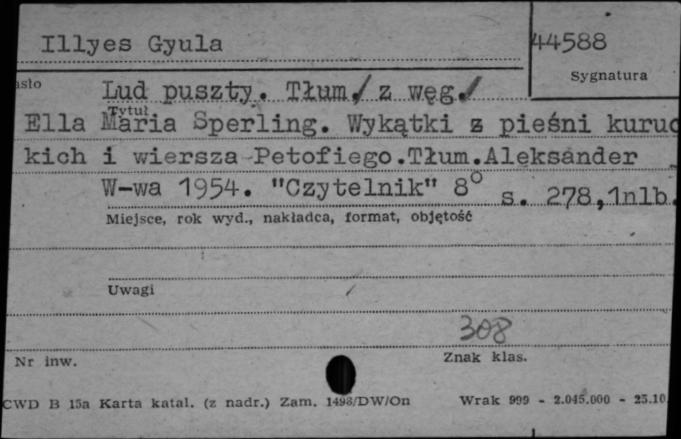 Illyes Gyula
44588
Sygnatura
Lud puszty. Tłum/ z węg./
Tytuł
Ella Maria Sperling. Wykątki z pieśni kuruc
kich i wiersza Petofiego.Tłum.Aleksander
W-wa 1954. "Czytelnik" 8° s. 278,1nlb.
Miejsce, rok wyd., nakładca, format, objętość
Uwagi
308
Nr inw.
Znak klas.
CWD B 15a Karta katal. (z nadr.) Zam. 1498/DW/On Wrak 999 - 2.045.000 - 25.10